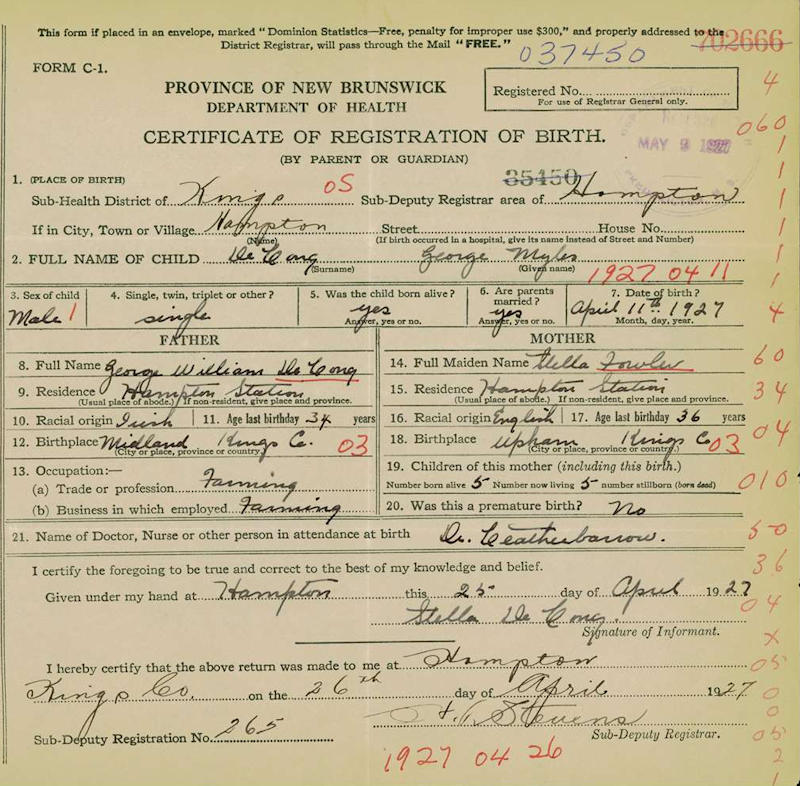 This form if placed in an envelope, marked "Dominion Statistics—Free, penalty for improper use $300," and properly addressed to the
District Registrar, will pass through the Mail "FREE."
037450
702666
FORM C-1.
PROVINCE OF NEW BRUNSWICK
DEPARTMENT OF HEALTH
Registered No.
For use of Registrar General only.
4
060
CERTIFICATE OF REGISTRATION OF BIRTH.
MAY 9 1927
(BY PARENT OR GUARDIAN)
1
1. (PLACE OF BIRTH)
35450
1
Sub-Health District of Kings 05 Sub-Deputy Registrar area of Hampton
1
If in City, Town or Village Hampton Street House No.
1
(Name) (If birth occurred in a hospital, give its name instead of Street and Number)
2. FULL NAME OF CHILD De Cong George Myles
1
(Surname) (Given name) 1927 04 11
3. Sex of child 4. Single, twin, triplet or other? 5. Was the child born alive? 6. Are parents married? 7. Date of birth?
Male 1 single yes yes April 11th 1927
4
Answer, yes or no. Answer, yes or no. Month, day, year.
FATHER MOTHER
8. Full Name George William De Cong 14. Full Maiden Name Stella Fowler
60
9. Residence Hampton Station 15. Residence Hampton Station
34
(Usual place of abode.) If non-resident, give place and province. (Usual place of abode.) If non-resident, give place and province.
10. Racial origin Irish 11. Age last birthday 34 years 16. Racial origin English 17. Age last birthday 36 years
04
12. Birthplace Midland Kings Co. 03 18. Birthplace Upham Kings Co 03
(City or place, province or country) (City or place, province or country)
13. Occupation:— 19. Children of this mother (including this birth.)
(a) Trade or profession Farming Number born alive 5 Number now living 5 number stillborn (born dead)
010
(b) Business in which employed Farming 20. Was this a premature birth? No
21. Name of Doctor, Nurse or other person in attendance at birth Dr. Leatherbarrow.
50
I certify the foregoing to be true and correct to the best of my knowledge and belief.
36
Given under my hand at Hampton this 25 day of April 1927
04
Stella De Cong.
Signature of Informant.
X
I hereby certify that the above return was made to me at Hampton
05
Kings Co. on the 26th day of April 1927
0
0
Stevens
Sub-Deputy Registration No. 265 Sub-Deputy Registrar.
05
1927 04 26
2
1